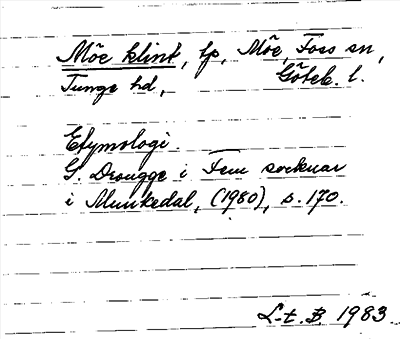 Möe klint, lp, Möe, Foss sn,
Tunge hd, Göteb. l.
Etymologi.
G. Drougge i Fem socknar
i Munkedal, (1980), s. 170.
L-t. B. 1983